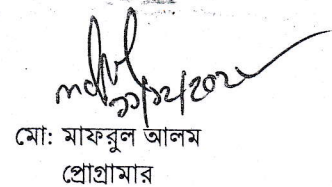 মো: মাফরুল আলম
প্রোগ্রামার